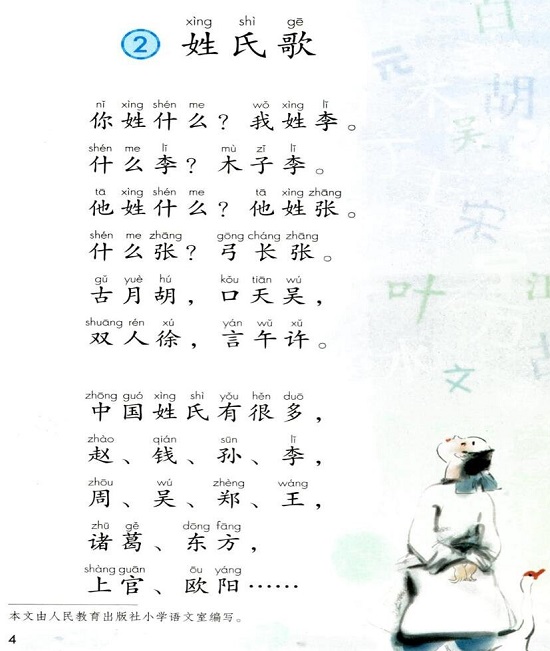 xìng shì gē
2 姓氏歌
nǐ xìng shén me wǒ xìng lǐ
你姓什么？我姓李。
shén me lǐ mù zǐ lǐ
什么李？木子李。
tā xìng shén me tā xìng zhāng
他姓什么？他姓张。
shén me zhāng gōng cháng zhāng
什么张？弓长张。
gǔ yuè hú kǒu tiān wú
古月胡，口天吴，
shuāng rén xú yán wǔ xǔ
双人徐，言午许。
zhōng guó xìng shì yǒu hěn duō
中国姓氏有很多，
zhào qián sūn lǐ
赵、钱、孙、李，
zhōu wú zhèng wáng
周、吴、郑、王，
zhū gě dōng fāng
诸葛、东方，
shàng guān ōu yáng
上官、欧阳……
本文由人民教育出版社小学语文室编写。
4
百
元
胡
吴
宋
叶
江
古
文